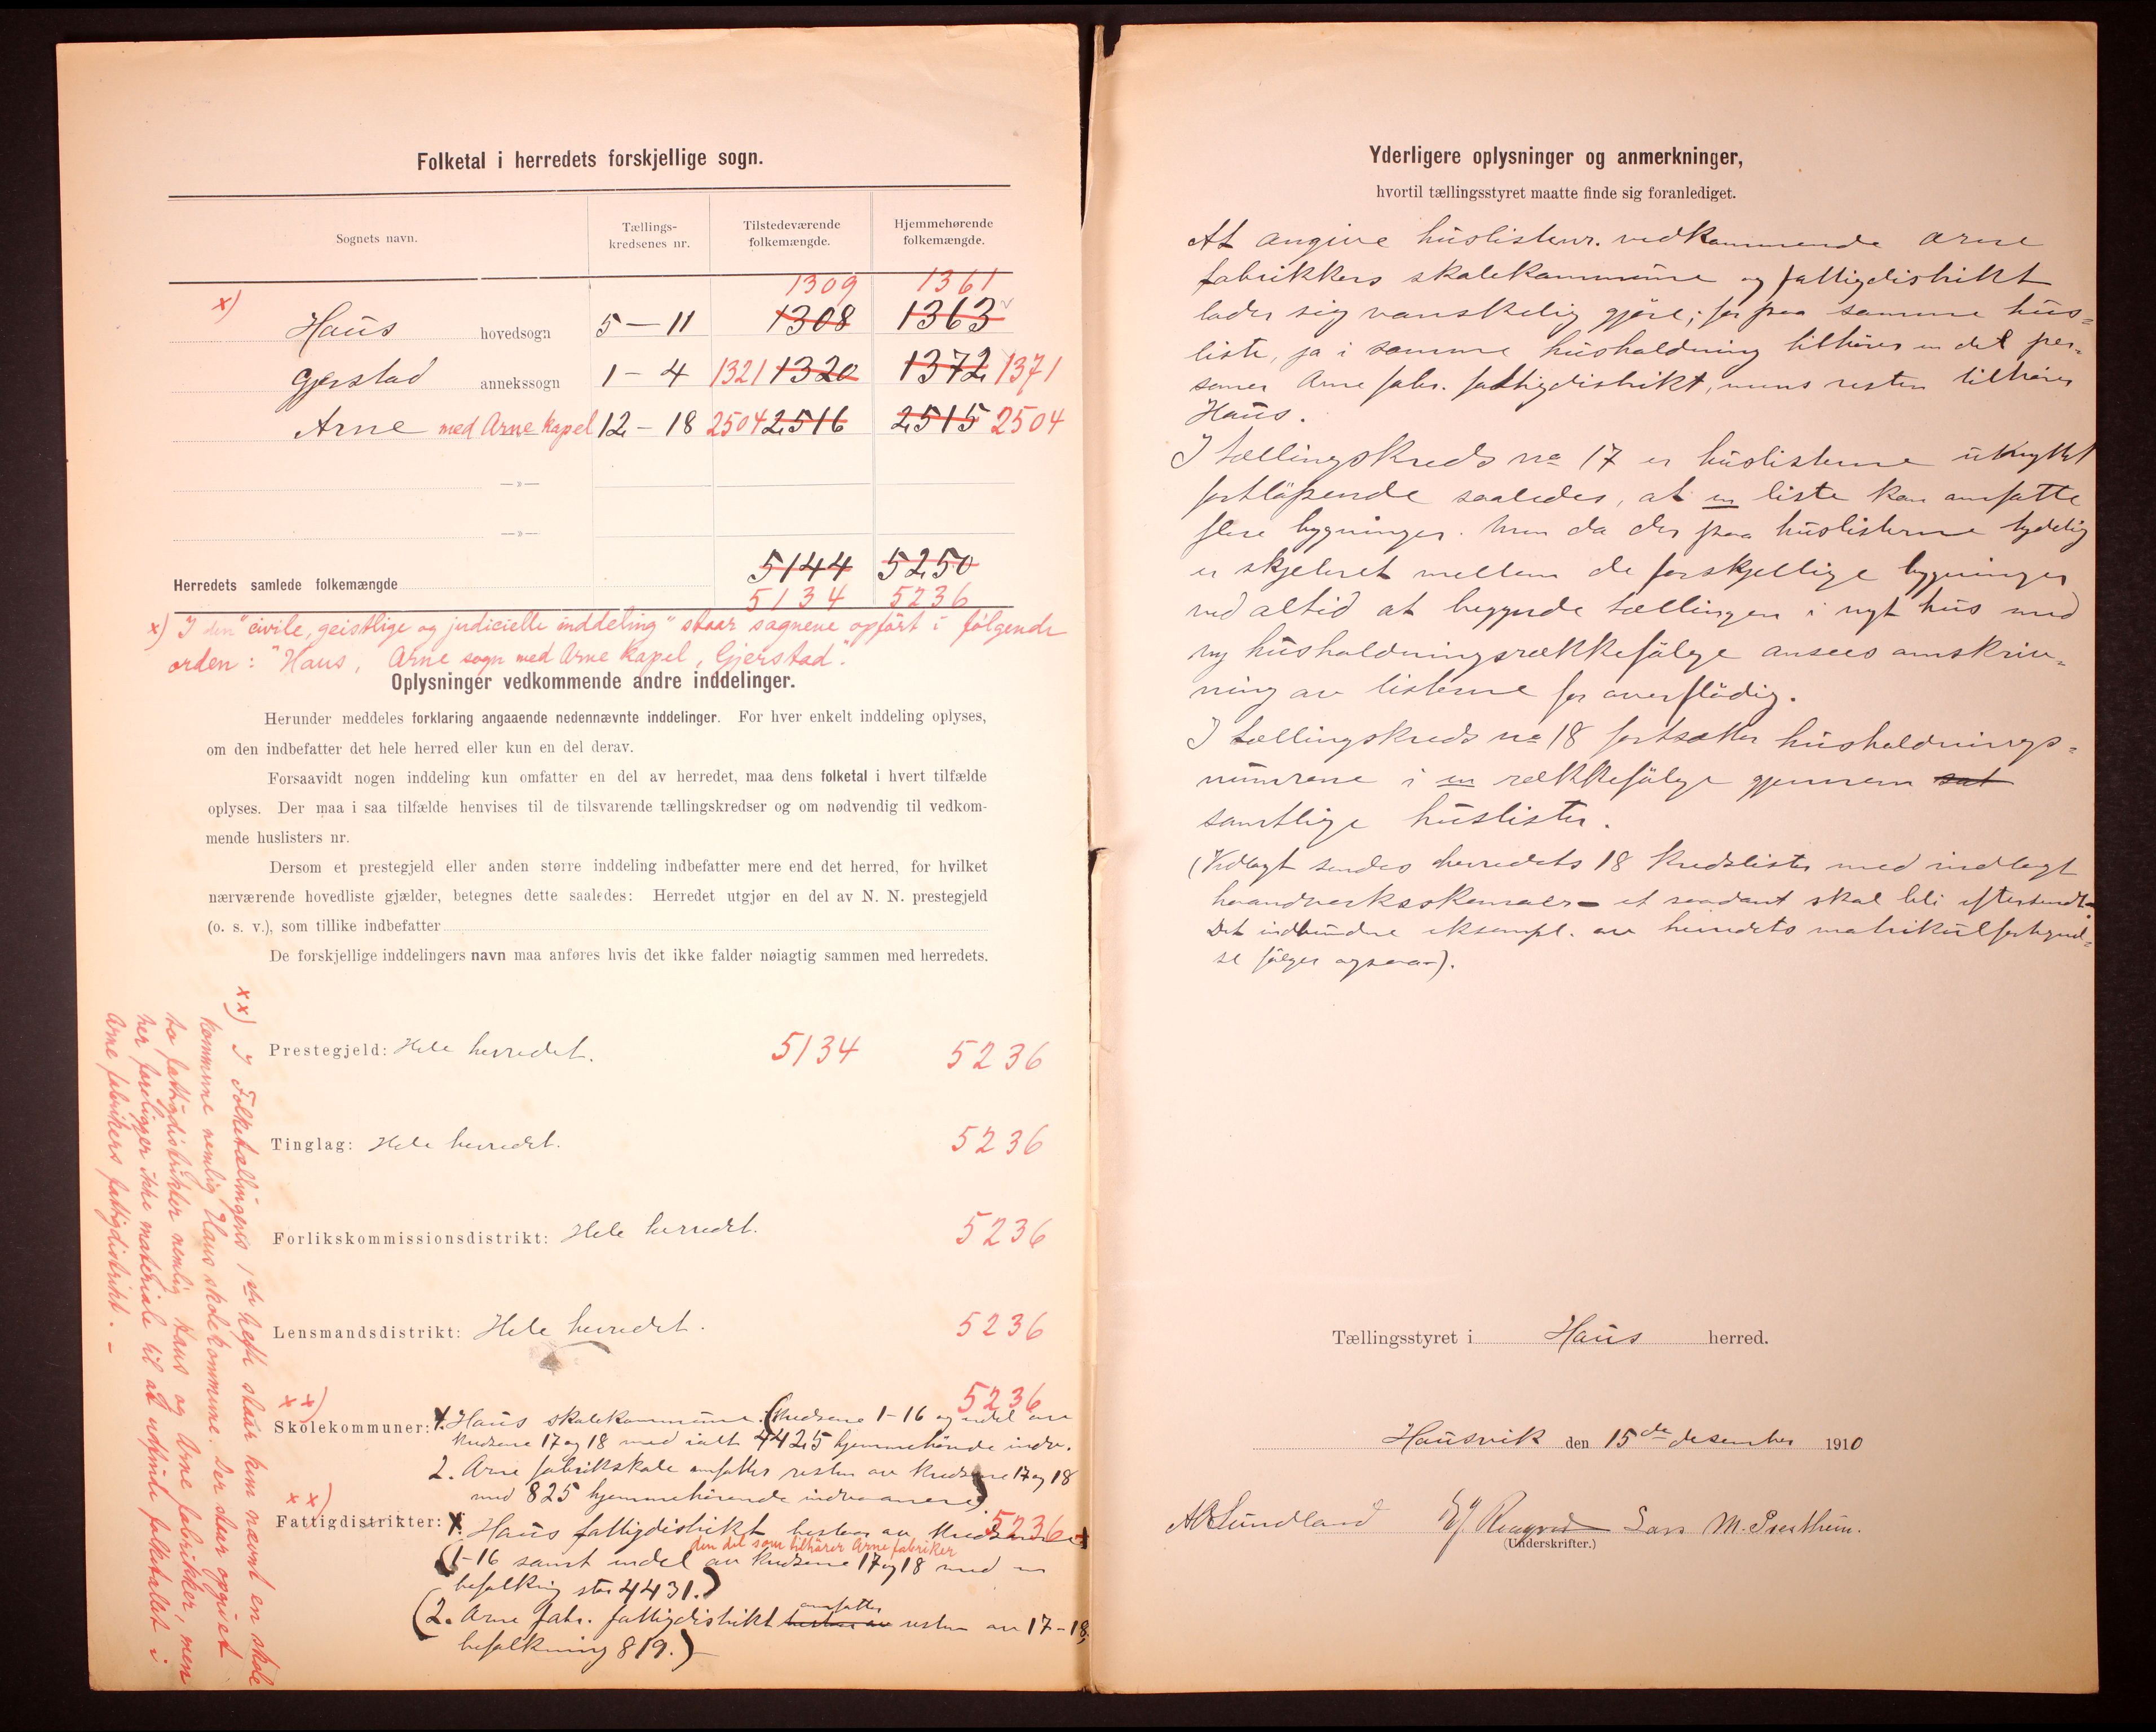 Folketal i herredets forskjellige sogn.
Sognets navn.
Tællings-
kredsenes nr.
Tilstedeværende
folkemængde.
Hjemmehørende
folkemængde.
1309 1361
x) Haus hovedsogn 5 – 11 1308 1363
Gjerstad annekssogn 1 – 4 1321 1320 1372 1371
Arne med Arne Kapel 12 – 18 2504 2516 2515 2504
—»—
—»—
5144 5250
Herredets samlede folkemængde
5134 5236
x) I den "civile, geistlige og judicielle inddeling" staar sognene opført i følgende
orden: "Haus, Arne sogn med Arne Kapel, Gjerstad".
Oplysninger vedkommende andre inddelinger.
Herunder meddeles forklaring angaaende nedennævnte inddelinger. For hver enkelt inddeling oplyses,
om den indbefatter det hele herred eller kun en del derav.
Forsaavidt nogen inddeling kun omfatter en del av herredet, maa dens folketal i hvert tilfælde
oplyses. Der maa i saa tilfælde henvises til de tilsvarende tællingskredser og om nødvendig til vedkom-
mende huslisters nr.
Dersom et prestegjeld eller anden større inddeling indbefatter mere end det herred, for hvilket
nærværende hovedliste gjælder, betegnes dette saaledes: Herredet utgjør en del av N. N. prestegjeld
(o. s. v.), som tillike indbefatter
De forskjellige inddelingers navn maa anføres hvis det ikke falder nøiagtig sammen med herredets.
Prestegjeld: Hele herredet. 5134 5236
Tinglag: Hele herredet. 5236
Forlikskommissionsdistrikt: Hele herredet. 5236
Lensmandsdistrikt: Hele herredet. 5236
xx) 5236
Skolekommuner: 1. Haus skolekommune. (Kredsene 1–16 og endel av
kredsene 17 og 18 med ialt 4425 hjemmehørende indv.
2. Arne fabrikskole omfatter resten av kredsene 17 og 18
med 825 hjemmehørende indvaanere).
xx)
Fattigdistrikter: 1. Haus fattigdistrikt bestaar av kredsene 5236
den del som tilhører Arne fabriker
(1–16 samt endel av kredsene 17 og 18 med en
befolkning stor 4431.)
(2. Arne fabr. fattigdistrikt bestaar av omfatter resten av 17–18,
befolkning 819.)
xx) I Folketællingens 1ste hefte staar kun nævnt en skole
kommune nemlig Haus skolekommune. Der staar opgivet
to fattigdistrikter nemlig Haus og Arne fabrikker, men
her foreligger ikke materiale til at utfinde folketallet i
Arne fabrikers fattigdistrikt. –
Yderligere oplysninger og anmerkninger,
hvortil tællingsstyret maatte finde sig foranlediget.
At angive huslistenr. vedkommende Arne
fabrikkers skolekommune og fattigdistrikt
lader sig vanskelig gjøre; for paa samme hus=
liste, ja i samme husholdning tilhører en del per=
soner Arne fabr. fattigdistrikt, mens resten tilhører
Haus.
I tællingskreds no 17 er huslisterne utnyttet
fortløpende saaledes, at en liste kan omfatte
flere bygninger. Men da der paa huslisterne tydelig
er skjelnet mellem de forskjellige bygninger
ved altid at begynde tællingen i nyt hus med
ny husholdningsrækkefølge ansees omskriv=
ning av listerne for overflødig.
I tællingskreds no 18 fortsætter husholdnings=
numrene i en rækkefølge gjennem sat
samtlige huslister.
(Vedlagt sendes herredets 18 kredslister med indlagt
haandverksskemaer – et saadant skal bli eftersendt –
Det indbundne eksempl. av herredets matrikulfortegnel=
se følger ogsaa –).
Tællingsstyret i Haus herred.
Hausvik den 15de desember 1910
Lars M.
(Underskrifter.)